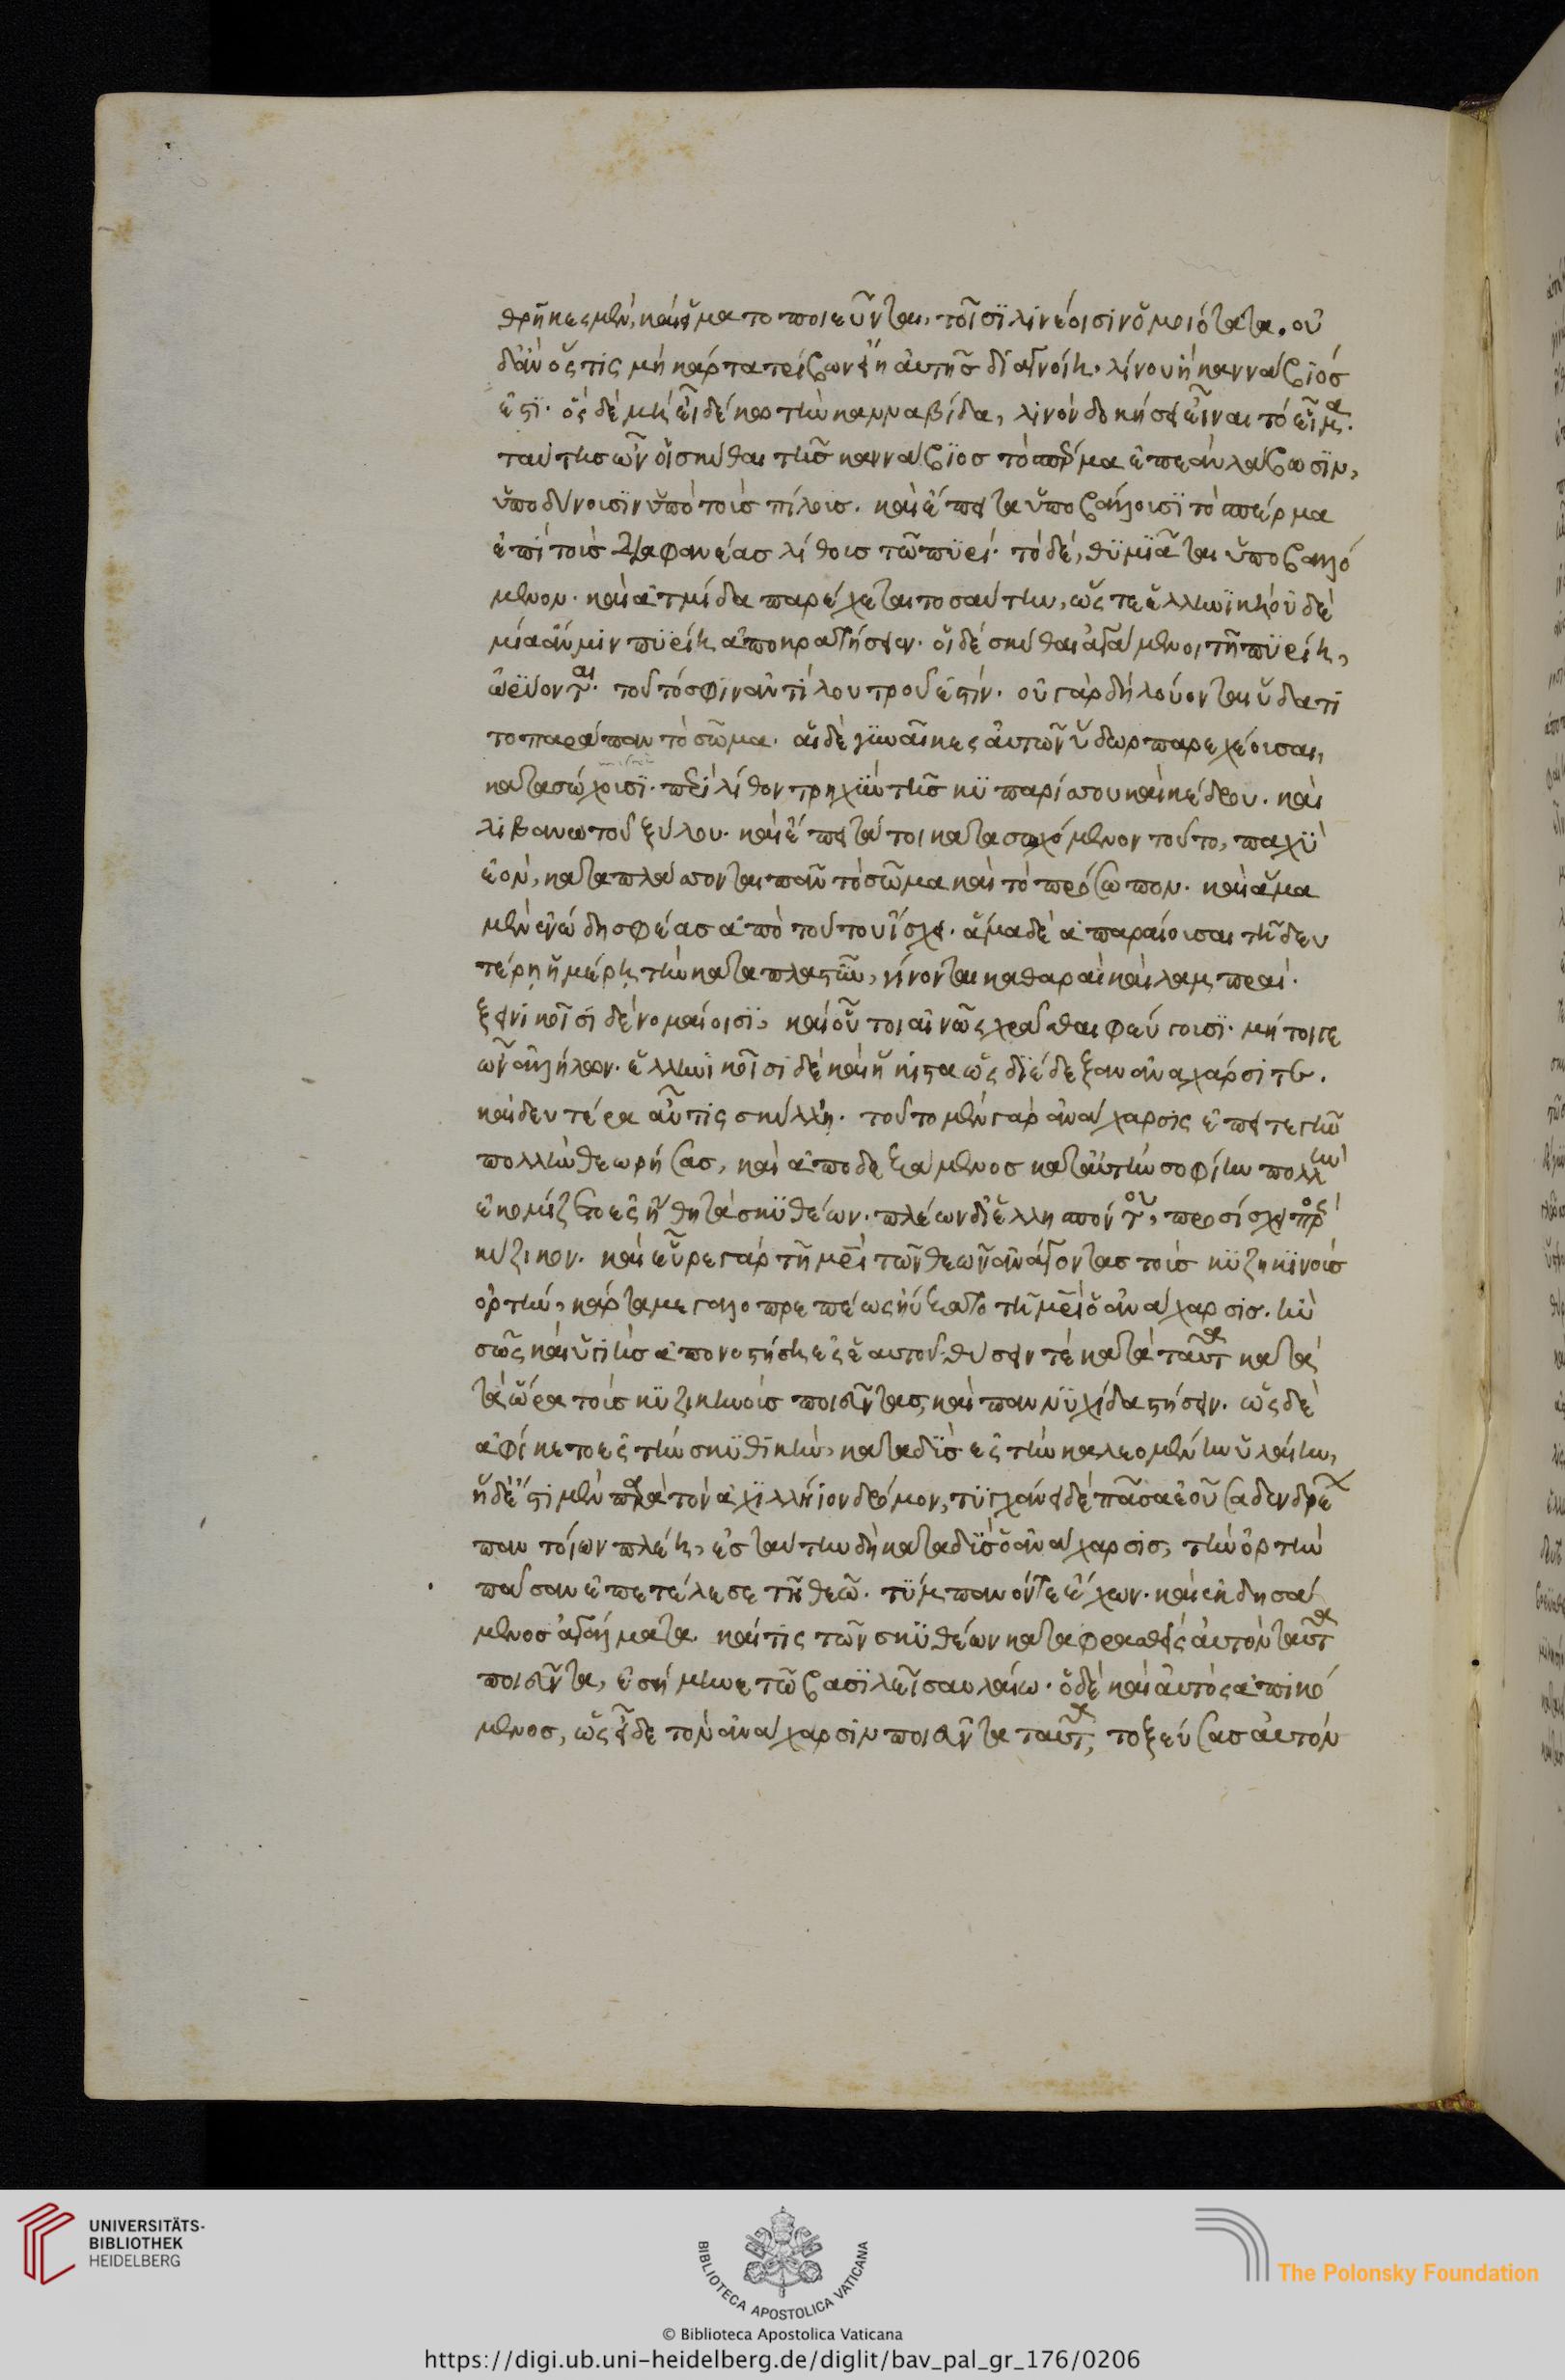 θρήϊκες μὲν καὶ εἵματα ποιεῦνται, τοῖσι λινέοισιν ὁμοιότατα. οὐ
δ' ἂν ὅς τις μὴ κάρτα τρίβων εἴη αὐτῆς διαγνοίη. λίνου ἢ καννάβιός
ἐστι. ὃς δὲ μὴ εἶδέ κω τὴν κανναβίδα, λίνον δοκήσει εἶναι τὸ εἷμα.
ταύτης ὦν οἱ σκύθαι τῆς καννάβιος τὸ σπέρμα ἐπεὰν λάβωσιν,
ὑποδύνουσιν ὑπὸ τοὺς πίλους. καὶ ἔπειτα ὑποβάλλουσι τὸ σπέρμα
ἐπὶ τοὺς διαφανέας λίθους τῶ πυρί. τὸ δὲ, θυμιᾶται ὑποβαλλό
μενον. καὶ ἀτμίδα παρέχεται τοσαύτην, ὥστε ἑλληνικὴ οὐδε
μία ἄν μιν πυρίη ἀποκρατήσειεν. οἱ δὲ σκύθαι ἀγάμενοι τῆ πυρίη,
ὠρύονται. τοῦτό σφιν ἀντὶ λουτροῦ ἐστίν. οὐ γὰρ δὴ λούονται ὕδατι
τοπαράπαν τὸ σῶμα. αἱ δὲ γυναῖκες αὐτῶν ὕδωρ παρεχέουσαι,
κατασώχουσι. περὶ λίθον τρηχὺν τῆς κυπαρίσσου καὶ κέδρου. καὶ
λιβανωτοῦ ξύλου. καὶ ἔπειτά τοι κατασωχόμενον τοῦτο, παχὺ
ἐὸν, καταπλάσσονται πᾶν τὸ σῶμα καὶ τὸ πρόσωπον. καὶ ἅμα
μὲν εὐώδη σφέας ἀπὸ τούτου ἴσχει. ἅμα δὲ ἀπαραίουσαι τῆ δευ
τέρη ἡμέρη τὴν καταπλαστὺν, γίνονται καθαραὶ καὶ λαμπραί.
ξεινικοῖσι δὲ νομαίοισι, καὶ οὗτοι αἰνῶς χρᾶσθαι φεύγουσι. μήτοι γε
ὦν ἀλλήλων. ἑλληνικοῖσι δὲ καὶ ἥκιστα ὡς διέδεξαν ἀναχάρσι τε.
καὶ δευτέρα αὖτις σκύλλη. τοῦτο μὲν γὰρ ἀνάχαρσις ἐπεί τε γῆν
πολλὴν θεωρήσας, καὶ ἀποδεξάμενος κατ' αὐτὴν σοφίην πολλὴν
ἐκομίζετο ἐς ἤθη τὰ σκυθέων. πλέων δι' ἑλλησπόντου, προσίσχει πρὸς
κύζικον. καὶ εὗρε γὰρ τῆ μητρὶ τῶν θεῶν ἀνάγοντας τοὺς κυζικηνοὺς
ὁρτὴν, κάρτα μεγαλοπρεπέως εὔξατο τῆ μητρὶ ὁ ἀνάχαρσις. ἢν
σῶς καὶ ὑγιὴς ἀπονοστήση ἐς ἑαυτοῦ. θύσειν τε κατὰ ταῦτα κατὰ
τὰ ὥρα τοὺς κυζικηνοὺς ποιεῦντας, καὶ παννυχίδα στήσειν. ὡς δὲ
ἀφίκετο ἐς τὴν σκυθικὴν, καταδὺς ἐς τὴν καλεομένην ὑλαίην,
ἡ δ' ἔστι μὲν παρὰ τὸν ἀχιλλήϊον δρόμον, τυγχάνει δὲ πᾶσα ἐοῦσα δενδρέων
παντοίων πλέη, ἐς ταύτην δὴ καταδὺς ὁ ἀνάχαρσις, τὴν ὁρτὴν
πᾶσαν ἐπετέλεσε τῆ θεῶ. τύμπανόν τε ἔχων. καὶ ἐκδησά
μενος ἀγάλματα. καί τις τῶν σκυθέων καταφρασθεὶς αὐτὸν ταῦτα
ποιεῦντα, ἐσήμηνε τῶ βασιλεῖ σαυλαίω. ὁ δὲ καὶ αὐτὸς ἀπικό
μενος, ὡς εἶδε τὸν ἀνάχαρσιν ποιεῦντα ταῦτα, τοξεύσας αὐτὸν
UNIVERSITÄTS-
BIBLIOTHEK
HEIDELBERG
BIBLIOTECA APOSTOLICA VATICANA
The Polonsky Foundation
© Biblioteca Apostolica Vaticana
https://digi.ub.uni-heidelberg.de/diglit/bav_pal_gr_176/0206